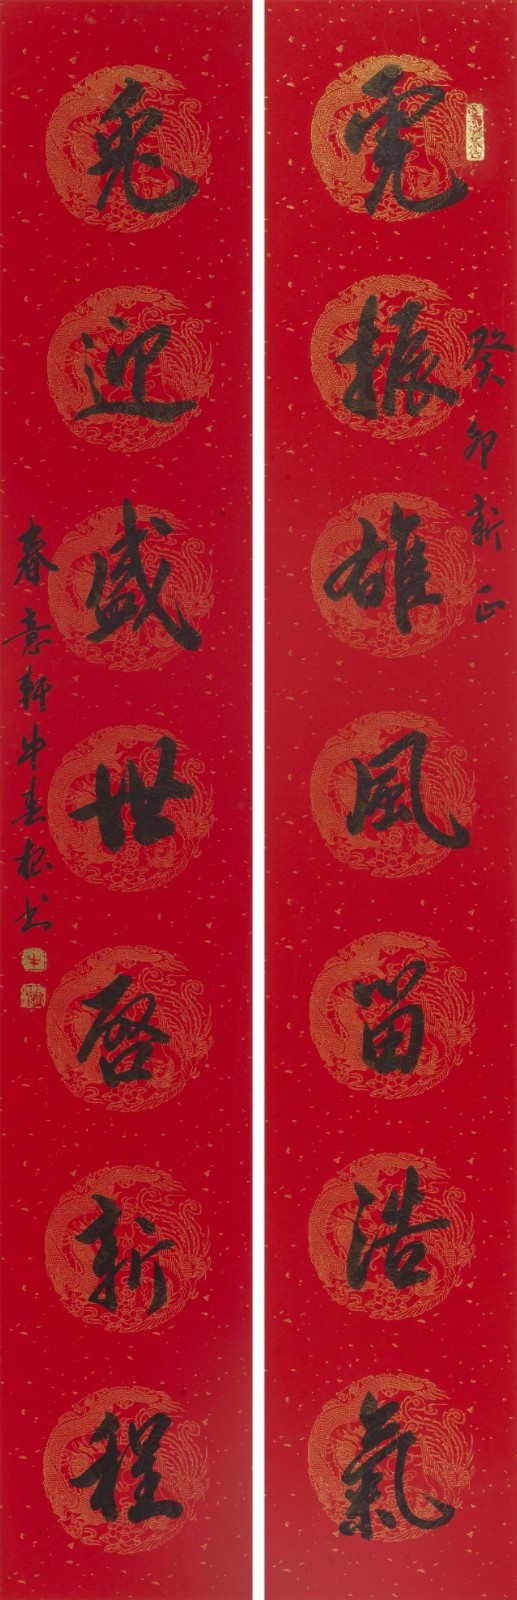 虎振雄風留浩氣
癸卯新正
兔迎盛世啓新程
春意軒牛春松书